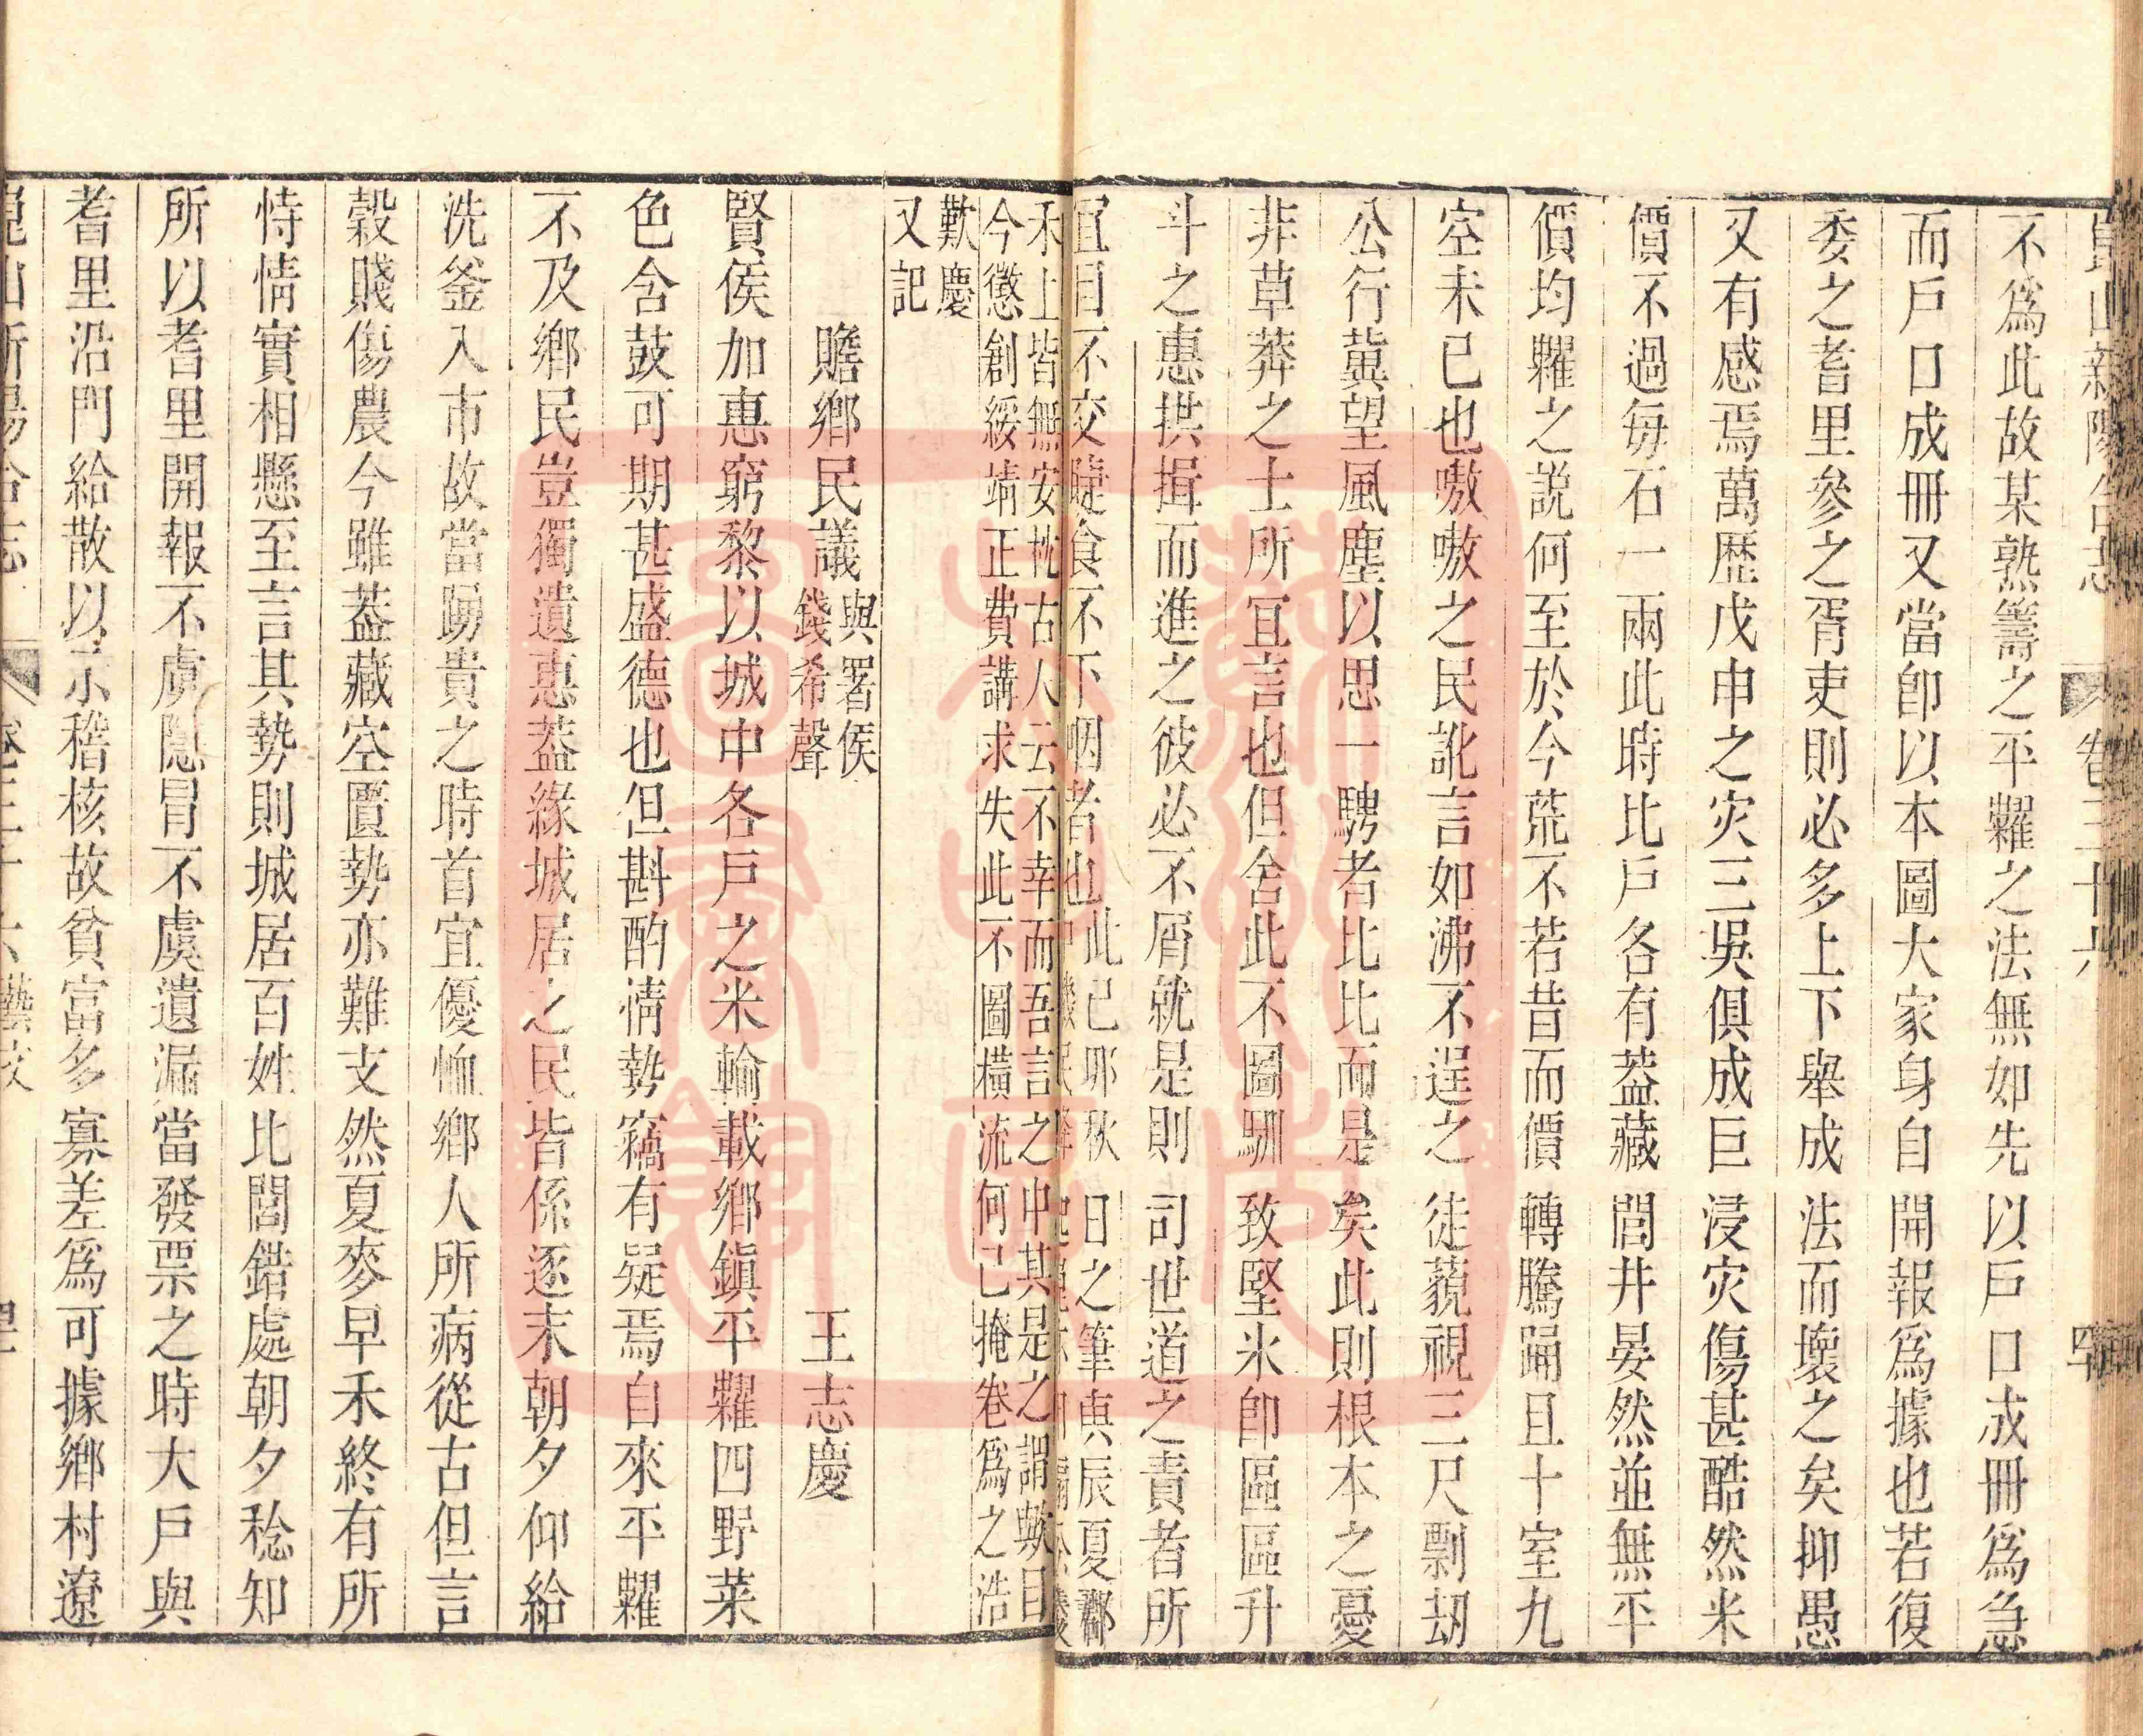 崑山新陽合志 卷三十六
不爲此故某熟籌之平糶之法無如先以戶口成冊爲急
而戶口成冊又當卽以本圖大家身自開報爲據也若復
委之耆里參之胥吏則必多上下舉成法而壞之矣抑愚
又有感焉萬歷戊申之灾三吳俱成巨浸灾傷甚酷然米
價不過每石一兩此時比戶各有葢藏閭井晏然並無平
價均糶之說何至於今荒不若昔而價轉騰踊且十室九
空未已也嗷嗷之民訛言如沸不逞之徒藐視三尺剽刼
公行冀望風塵以思一騁者比比而是矣此則根本之憂
非草莽之士所宜言也但舍此不圖馴致堅氷卽區區升
斗之惠拱揖而進之彼必不屑就是則司世道之責者所
宜目不交睫食不下咽者也
此己邜秋日之筆庚辰夏鄰
禾上皆無安枕古人云不幸而吾言之中其是之謂歟目
今懲創綏靖正費講求失此不圖橫流何已掩卷爲之浩
歎慶
又記
贍鄉民議 與署侯錢希聲 王志慶
賢侯加惠窮黎以城中各戶之米輸載鄉鎭平糶四野菜
色含鼓可期甚盛德也但斟酌情勢竊有疑焉自來平糶
不及鄉民豈獨遺惠葢緣城居之民皆係逐末朝夕仰給
洗釜入市故當踴貴之時首宜優恤鄉人所病從古但言
穀賤傷農今雖葢藏空匱勢亦難支然夏麥早禾終有所
恃情實相懸至言其勢則城居百姓比閭錯處朝夕稔知
所以耆里開報不虞隱冒不虞遺漏當發票之時大戶與
耆里沿門給散以示稽核故貧富多寡差爲可據鄉村遼
崑山新陽合志 卷三十六 藝文